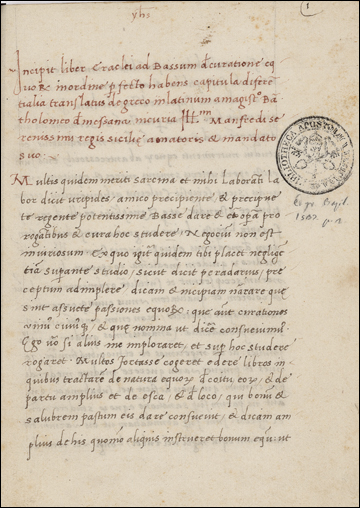 yhs
1
Incipit liber Eraclei ad Bassum de curatione eq
uoR in ordine pfecto habens capitula differē
tialia translatus de greco in latinum a magistro Ba
tholomeo de messana in curia Ill.mi Manfredi se
renissimi regis sicilie amatoris & mandato
suo.
Multis quidem meriti sarcina et mihi laboranti la
bor dicit uripides amico precipiente, & precipue
te regente potentissime Basse dare et opam p
rogatibus & cura hoc studere. Negocium non est
iniuriosum. Ex quo igit quidem tibi placet neglige
tia supante studio, sicut dicit pcradarius, pre
ceptum adimplere dicam & incipiam narare que
sint assuete passiones equoR: que aut curationes
unius cuiusq, & que nomina ut dicere consueuimus.
Ego uo si alius me imploraret, et sup hoc studere
rogaret. Multos forctasse cogeret edere libros in
quibus tractare de natura equoR de costu eoR, & de
partu amplius et de esca, & de loco, qui bonum &
salubrem pastum eis dare consueuit, & dicam am
plius de his quomo aliquis instrueret bonum equū: ut
BIBLIOTHECA